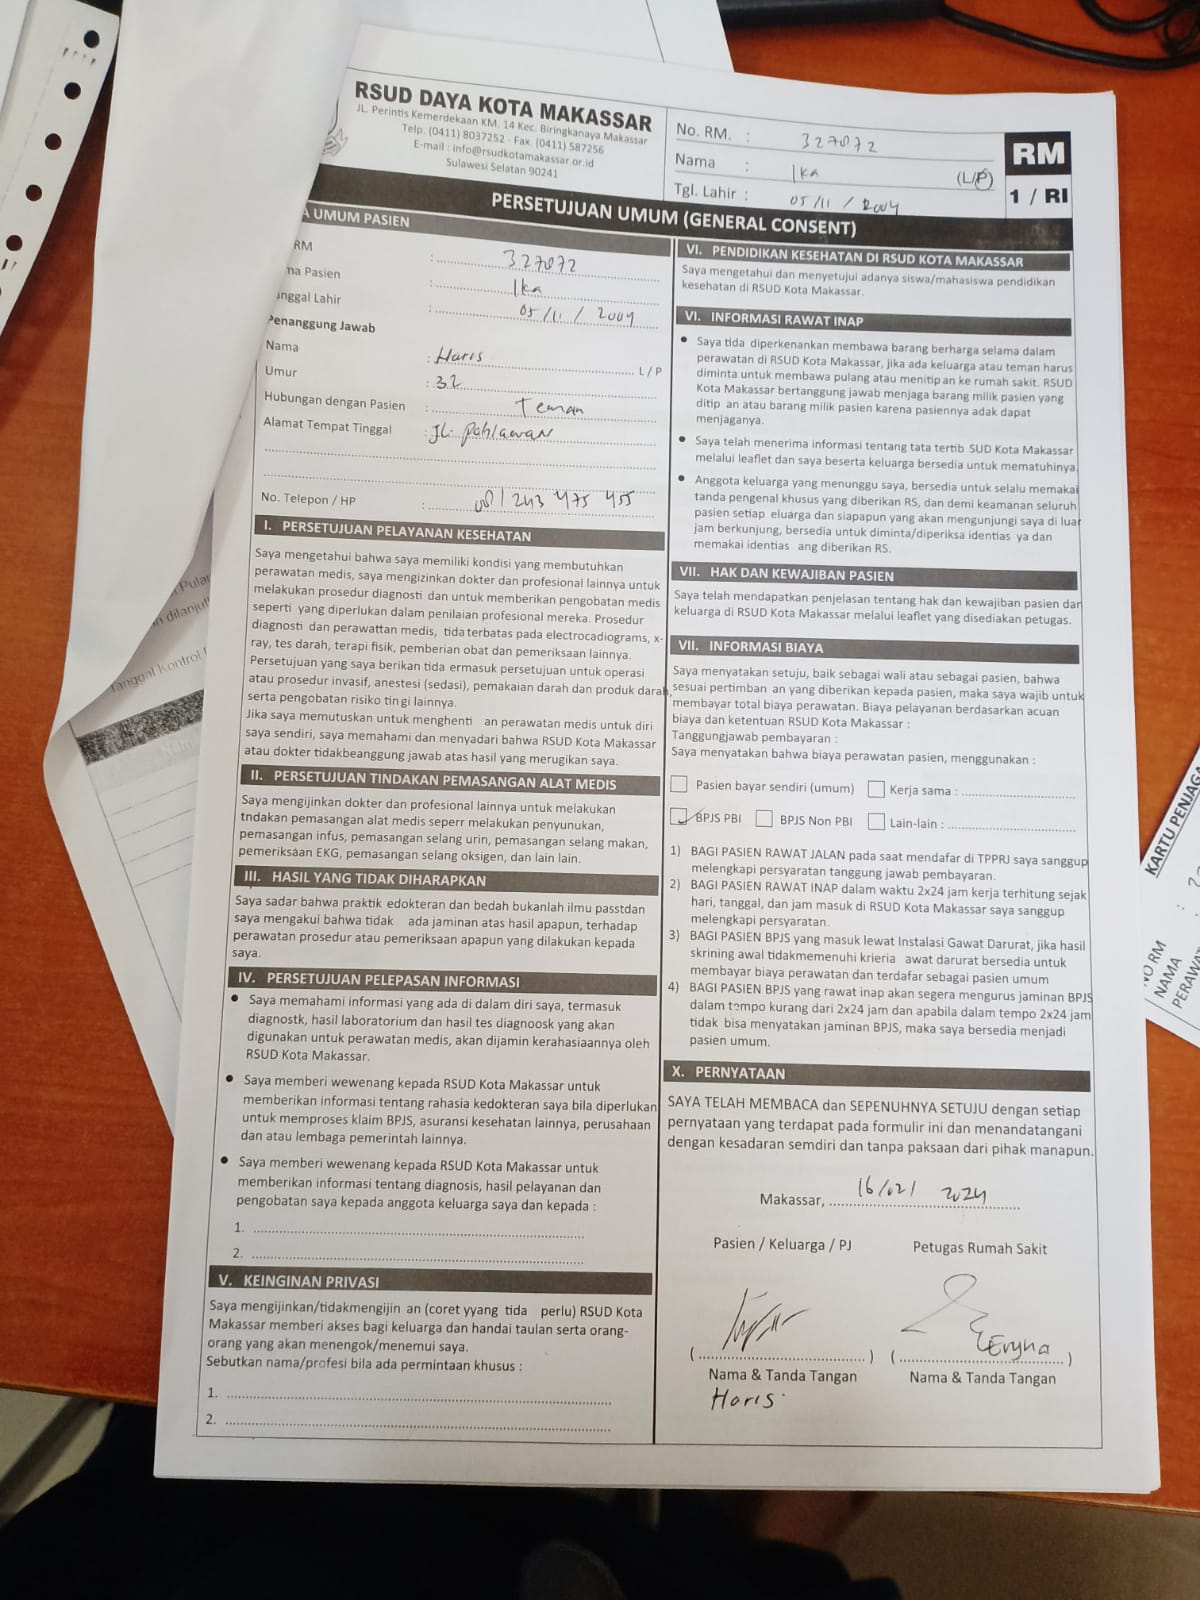 RSUD DAYA KOTA MAKASSAR
JL. Perintis Kemerdekaan KM. 14 Kec. Biringkanaya Makassar
Telp. (0411) 8037252 - Fax. (0411) 587256
E-mail : info@rsudkotamakassar.or.id
Sulawesi Selatan 90241
No. RM. : 327072
Nama : Ika (L/P)
Tgl. Lahir : 05/11/2004
RM
1 / RI
PERSETUJUAN UMUM (GENERAL CONSENT)
A UMUM PASIEN
RM : 327072
ma Pasien : Ika
nggal Lahir : 05/11/2004
Penanggung Jawab
Nama : Haris L / P
Umur : 32
Hubungan dengan Pasien : Teman
Alamat Tempat Tinggal : JL. Pahlawan
No. Telepon / HP : 081 243 475 455
I. PERSETUJUAN PELAYANAN KESEHATAN
Saya mengetahui bahwa saya memiliki kondisi yang membutuhkan
perawatan medis, saya mengizinkan dokter dan profesional lainnya untuk
melakukan prosedur diagnosti dan untuk memberikan pengobatan medis
seperti yang diperlukan dalam penilaian profesional mereka. Prosedur
diagnosti dan perawattan medis, tida terbatas pada electrocadiograms, x-
ray, tes darah, terapi fisik, pemberian obat dan pemeriksaan lainnya.
Persetujuan yang saya berikan tida ermasuk persetujuan untuk operasi
atau prosedur invasif, anestesi (sedasi), pemakaian darah dan produk darah,
serta pengobatan risiko tin gi lainnya.
Jika saya memutuskan untuk menghenti an perawatan medis untuk diri
saya sendiri, saya memahami dan menyadari bahwa RSUD Kota Makassar
atau dokter tidakbeanggung jawab atas hasil yang merugikan saya.
II. PERSETUJUAN TINDAKAN PEMASANGAN ALAT MEDIS
Saya mengijinkan dokter dan profesional lainnya untuk melakukan
tndakan pemasangan alat medis seperr melakukan penyunukan,
pemasangan infus, pemasangan selang urin, pemasangan selang makan,
pemeriksaan EKG, pemasangan selang oksigen, dan lain lain.
III. HASIL YANG TIDAK DIHARAPKAN
Saya sadar bahwa praktik edokteran dan bedah bukanlah ilmu passtdan
saya mengakui bahwa tidak ada jaminan atas hasil apapun, terhadap
perawatan prosedur atau pemeriksaan apapun yang dilakukan kepada
saya.
IV. PERSETUJUAN PELEPASAN INFORMASI
• Saya memahami informasi yang ada di dalam diri saya, termasuk
diagnostk, hasil laboratorium dan hasil tes diagnoosk yang akan
digunakan untuk perawatan medis, akan dijamin kerahasiaannya oleh
RSUD Kota Makassar.
• Saya memberi wewenang kepada RSUD Kota Makassar untuk
memberikan informasi tentang rahasia kedokteran saya bila diperlukan
untuk memproses klaim BPJS, asuransi kesehatan lainnya, perusahaan
dan atau lembaga pemerintah lainnya.
• Saya memberi wewenang kepada RSUD Kota Makassar untuk
memberikan informasi tentang diagnosis, hasil pelayanan dan
pengobatan saya kepada anggota keluarga saya dan kepada :
1.
2.
V. KEINGINAN PRIVASI
Saya mengijinkan/tidakmengijin an (coret yyang tida perlu) RSUD Kota
Makassar memberi akses bagi keluarga dan handai taulan serta orang-
orang yang akan menengok/menemui saya.
Sebutkan nama/profesi bila ada permintaan khusus :
1.
2.
VI. PENDIDIKAN KESEHATAN DI RSUD KOTA MAKASSAR
Saya mengetahui dan menyetujui adanya siswa/mahasiswa pendidikan
kesehatan di RSUD Kota Makassar.
VI. INFORMASI RAWAT INAP
• Saya tida diperkenankan membawa barang berharga selama dalam
perawatan di RSUD Kota Makassar, jika ada keluarga atau teman harus
diminta untuk membawa pulang atau menitip an ke rumah sakit. RSUD
Kota Makassar bertanggung jawab menjaga barang milik pasien yang
ditip an atau barang milik pasien karena pasiennya adak dapat
menjaganya.
• Saya telah menerima informasi tentang tata tertib SUD Kota Makassar
melalui leaflet dan saya beserta keluarga bersedia untuk mematuhinya.
• Anggota keluarga yang menunggu saya, bersedia untuk selalu memakai
tanda pengenal khusus yang diberikan RS, dan demi keamanan seluruh
pasien setiap eluarga dan siapapun yang akan mengunjungi saya di luar
jam berkunjung, bersedia untuk diminta/diperiksa identias ya dan
memakai identias ang diberikan RS.
VII. HAK DAN KEWAJIBAN PASIEN
Saya telah mendapatkan penjelasan tentang hak dan kewajiban pasien dan
keluarga di RSUD Kota Makassar melalui leaflet yang disediakan petugas.
VII. INFORMASI BIAYA
Saya menyatakan setuju, baik sebagai wali atau sebagai pasien, bahwa
sesuai pertimban an yang diberikan kepada pasien, maka saya wajib untuk
membayar total biaya perawatan. Biaya pelayanan berdasarkan acuan
biaya dan ketentuan RSUD Kota Makassar :
Tanggungjawab pembayaran :
Saya menyatakan bahwa biaya perawatan pasien, menggunakan :
Pasien bayar sendiri (umum) Kerja sama :
BPJS PBI BPJS Non PBI Lain-lain :
1) BAGI PASIEN RAWAT JALAN pada saat mendafar di TPPRJ saya sanggup
melengkapi persyaratan tanggung jawab pembayaran.
2) BAGI PASIEN RAWAT INAP dalam waktu 2x24 jam kerja terhitung sejak
hari, tanggal, dan jam masuk di RSUD Kota Makassar saya sanggup
melengkapi persyaratan.
3) BAGI PASIEN BPJS yang masuk lewat Instalasi Gawat Darurat, jika hasil
skrining awal tidakmemenuhi krieria awat darurat bersedia untuk
membayar biaya perawatan dan terdafar sebagai pasien umum
4) BAGI PASIEN BPJS yang rawat inap akan segera mengurus jaminan BPJS
dalam tempo kurang dari 2x24 jam dan apabila dalam tempo 2x24 jam
tidak bisa menyatakan jaminan BPJS, maka saya bersedia menjadi
pasien umum.
X. PERNYATAAN
SAYA TELAH MEMBACA dan SEPENUHNYA SETUJU dengan setiap
pernyataan yang terdapat pada formulir ini dan menandatangani
dengan kesadaran semdiri dan tanpa paksaan dari pihak manapun.
Makassar, 16/02/ 2024
Pasien / Keluarga / PJ Petugas Rumah Sakit
Eryna
Nama & Tanda Tangan Nama & Tanda Tangan
Haris
Pular
n dilanjut
Tanggal Kontrol
KARTU PENJAGA
NO RM :
NAMA
PERAWAT